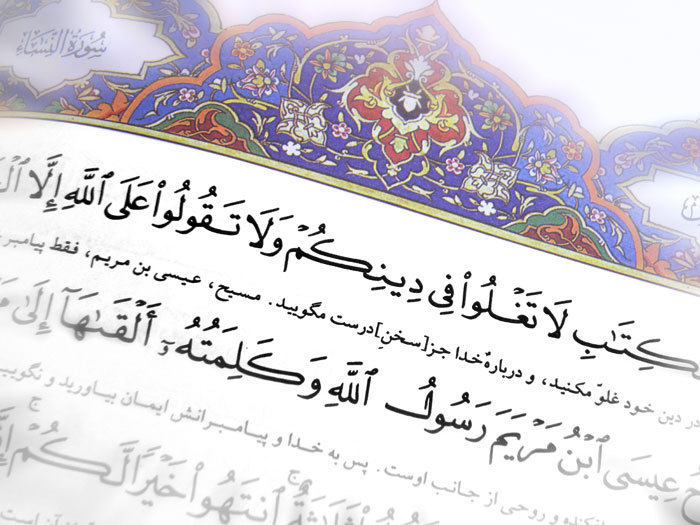 سُورَةُ النِّسَاء
ـكِتَٰبِ لَا تَغْلُوا۟ فِى دِينِكُمْ وَلَا تَقُولُوا۟ عَلَى ٱللَّهِ إِلَّا
در دین خود غلوّ مکنید، و دربارهٔ خدا جز [سخنِ] درست مگویید. مسیح، عیسی بن مریم، فقط پیامبر
عِيسَى ٱبْنُ مَرْيَمَ رَسُولُ ٱللَّهِ وَكَلِمَتُهُۥٓ أَلْقَىٰهَآ إِلَىٰ
و روحی از جانب اوست. پس به خدا و پیامبرانش ایمان بیاورید و نگویید
ثَلَٰثَةٌ ٱنتَهُوا۟ خَيْرًا لَّكُمْ